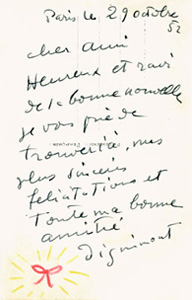 Paris le 29 octobre
52
cher ami
Heureux et ravi
de la bonne nouvelle
je vous prie de
trouver ici mes
plus sincères
félicitations et
toute ma bonne
amitié
Dignimont